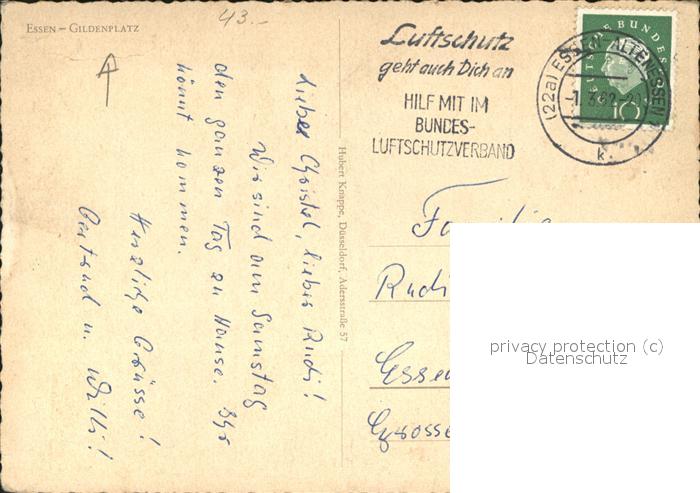 Essen – Gildenplatz
43.-
Luftschutz
geht auch Dich an
HILF MIT IM
BUNDES-
LUFTSCHUTZVERBAND
DEUTSCHE BUNDES
10
(22a) ESSEN-ALTENESSEN
-1.3.62-20
k
Hubert Knappe, Düsseldorf, Adersstraße 57
Liebe Christel, lieber Rudi!
Wir sind am Samstag
den ganzen Tag zu Hause. Ihr
könnt kommen.
Herzliche Grüsse!
Gertrud u. Willi!
Familie
Rudi
Essen
Grosse
privacy protection (c)
Datenschutz